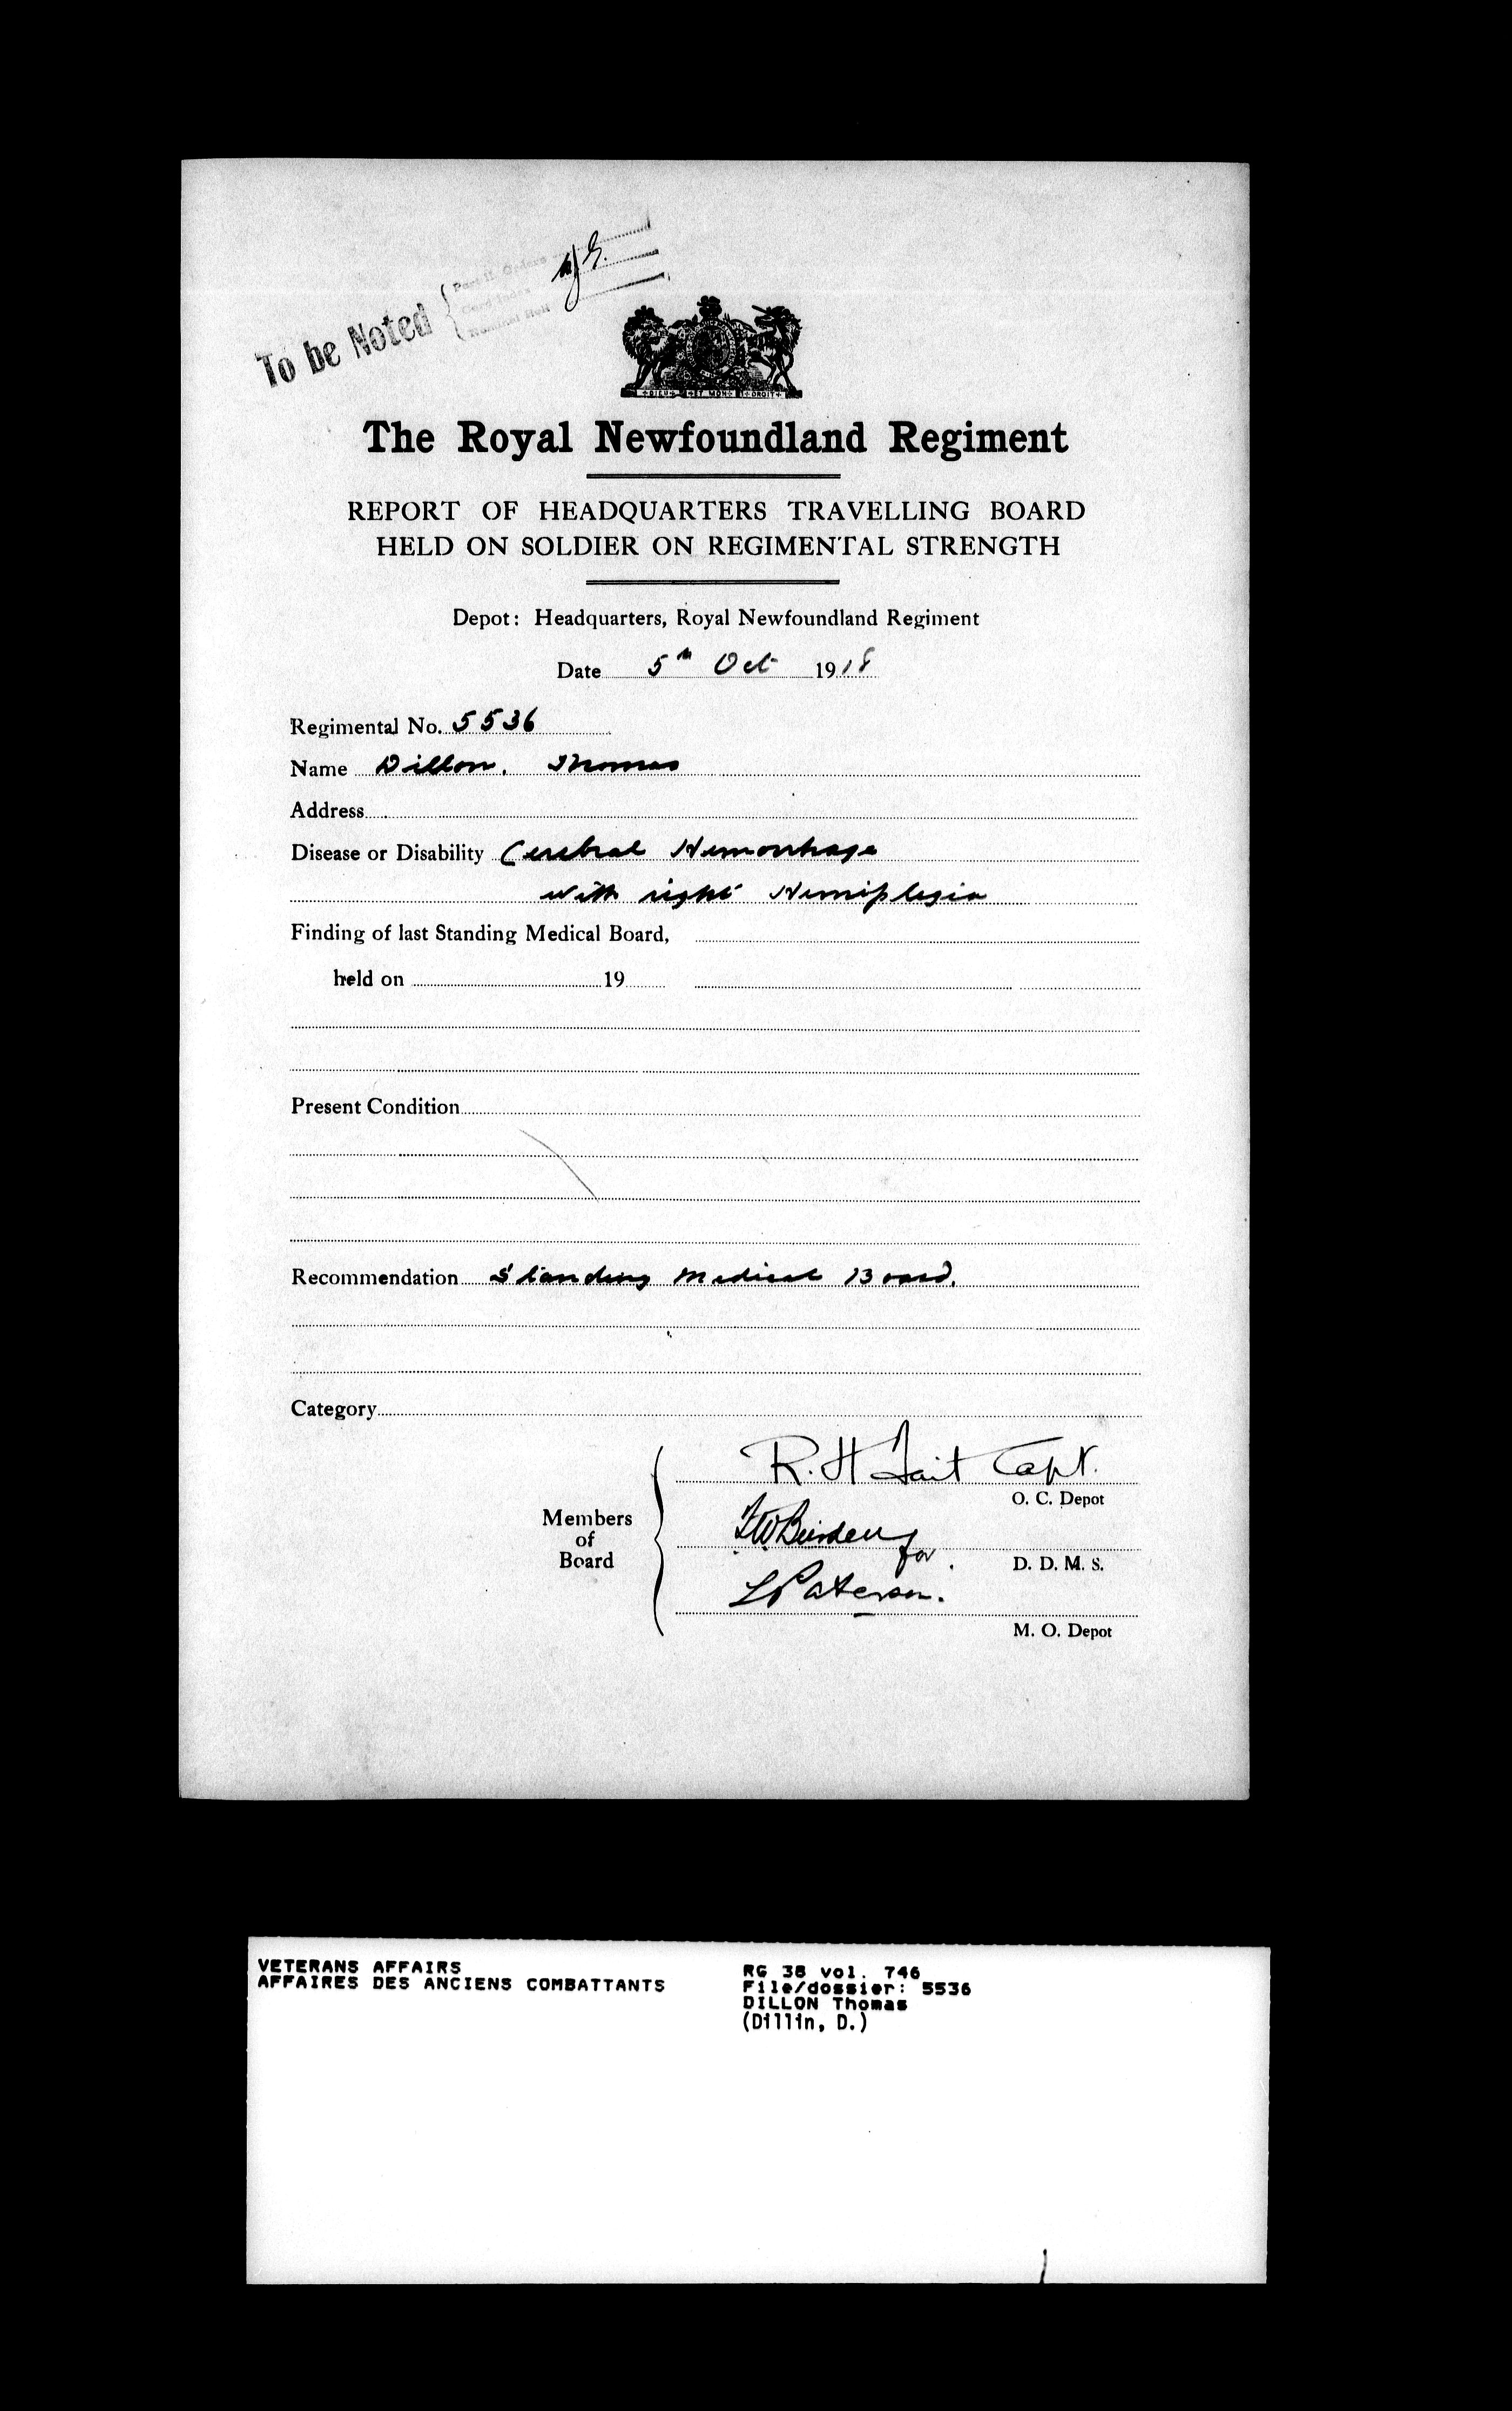 To be Noted { Part II Orders
Card Index
Nominal Roll
DIEU ET MON DROIT
The Royal Newfoundland Regiment
REPORT OF HEADQUARTERS TRAVELLING BOARD
HELD ON SOLDIER ON REGIMENTAL STRENGTH
Depot: Headquarters, Royal Newfoundland Regiment
Date 5th Oct 1918
Regimental No. 5536
Name Dillon. Thomas
Address
Disease or Disability Cerebral Hemorrhage
with right Hemiplegia
Finding of last Standing Medical Board,
held on 19
Present Condition
Recommendation Standing Medical Board.
Category
R. H Tait Capt.
O. C. Depot
Members
of
Board
for
D. D. M. S.
L Paterson.
M. O. Depot
VETERANS AFFAIRS
AFFAIRES DES ANCIENS COMBATTANTS
RG 38 vol. 746
File/dossier: 5536
DILLON Thomas
(Dillin, D.)